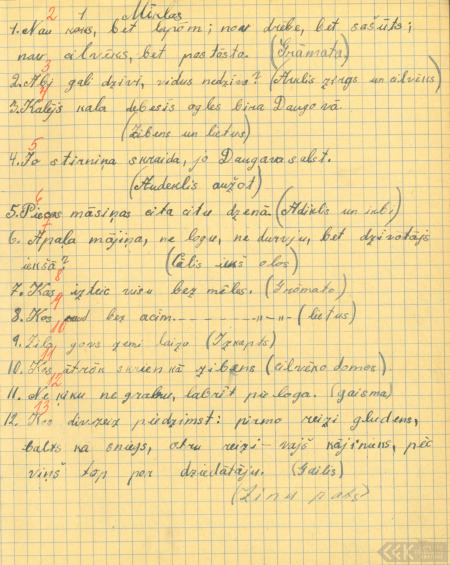 2 1 Mīklas
1. Nau koks, bet lapām; nav drēbe, bet sašūts;
nav cilvēks, bet pastāsta. (Grāmata)
3
2. Abi gali dzīvi, vidus nedzīvs? (Arklis zirgs un cilvēks)
4
3. Kalējs kala debesīs ogles bira Daugavā.
(Zibens un lietus)
5
4. Jo stirniņa skraida, jo Daugava salst.
(Audeklis aužot)
6
5. Piecas māsiņas cita citu dzenā. (Adiklis un)
7
6. Apaļa mājiņa, ne logu, ne durvju, bet dzīvotājs
iekšā? (Cālis iekš olas)
8
7. Kas izteic visu bez mēles. (Gromata)
9
8. Kas raud bez acīm. - - - - - - -"-"- (lietus)
10
9. Zila govs zemi laiza (Izkapts)
11
10. Kas ātrāk skrien kā zibens (cilvēka domas).
12
11. Ne ņiku ne grabu, labrīt pie loga. (gaisma)
13
12. Kas divreiz piedzimst: pirmo reizi gludens,
balts kā sniegs, otru reizi - vājš kājinieks, pēc
viņš top par dziedātāju. (Gailis)
(Zinu pats)